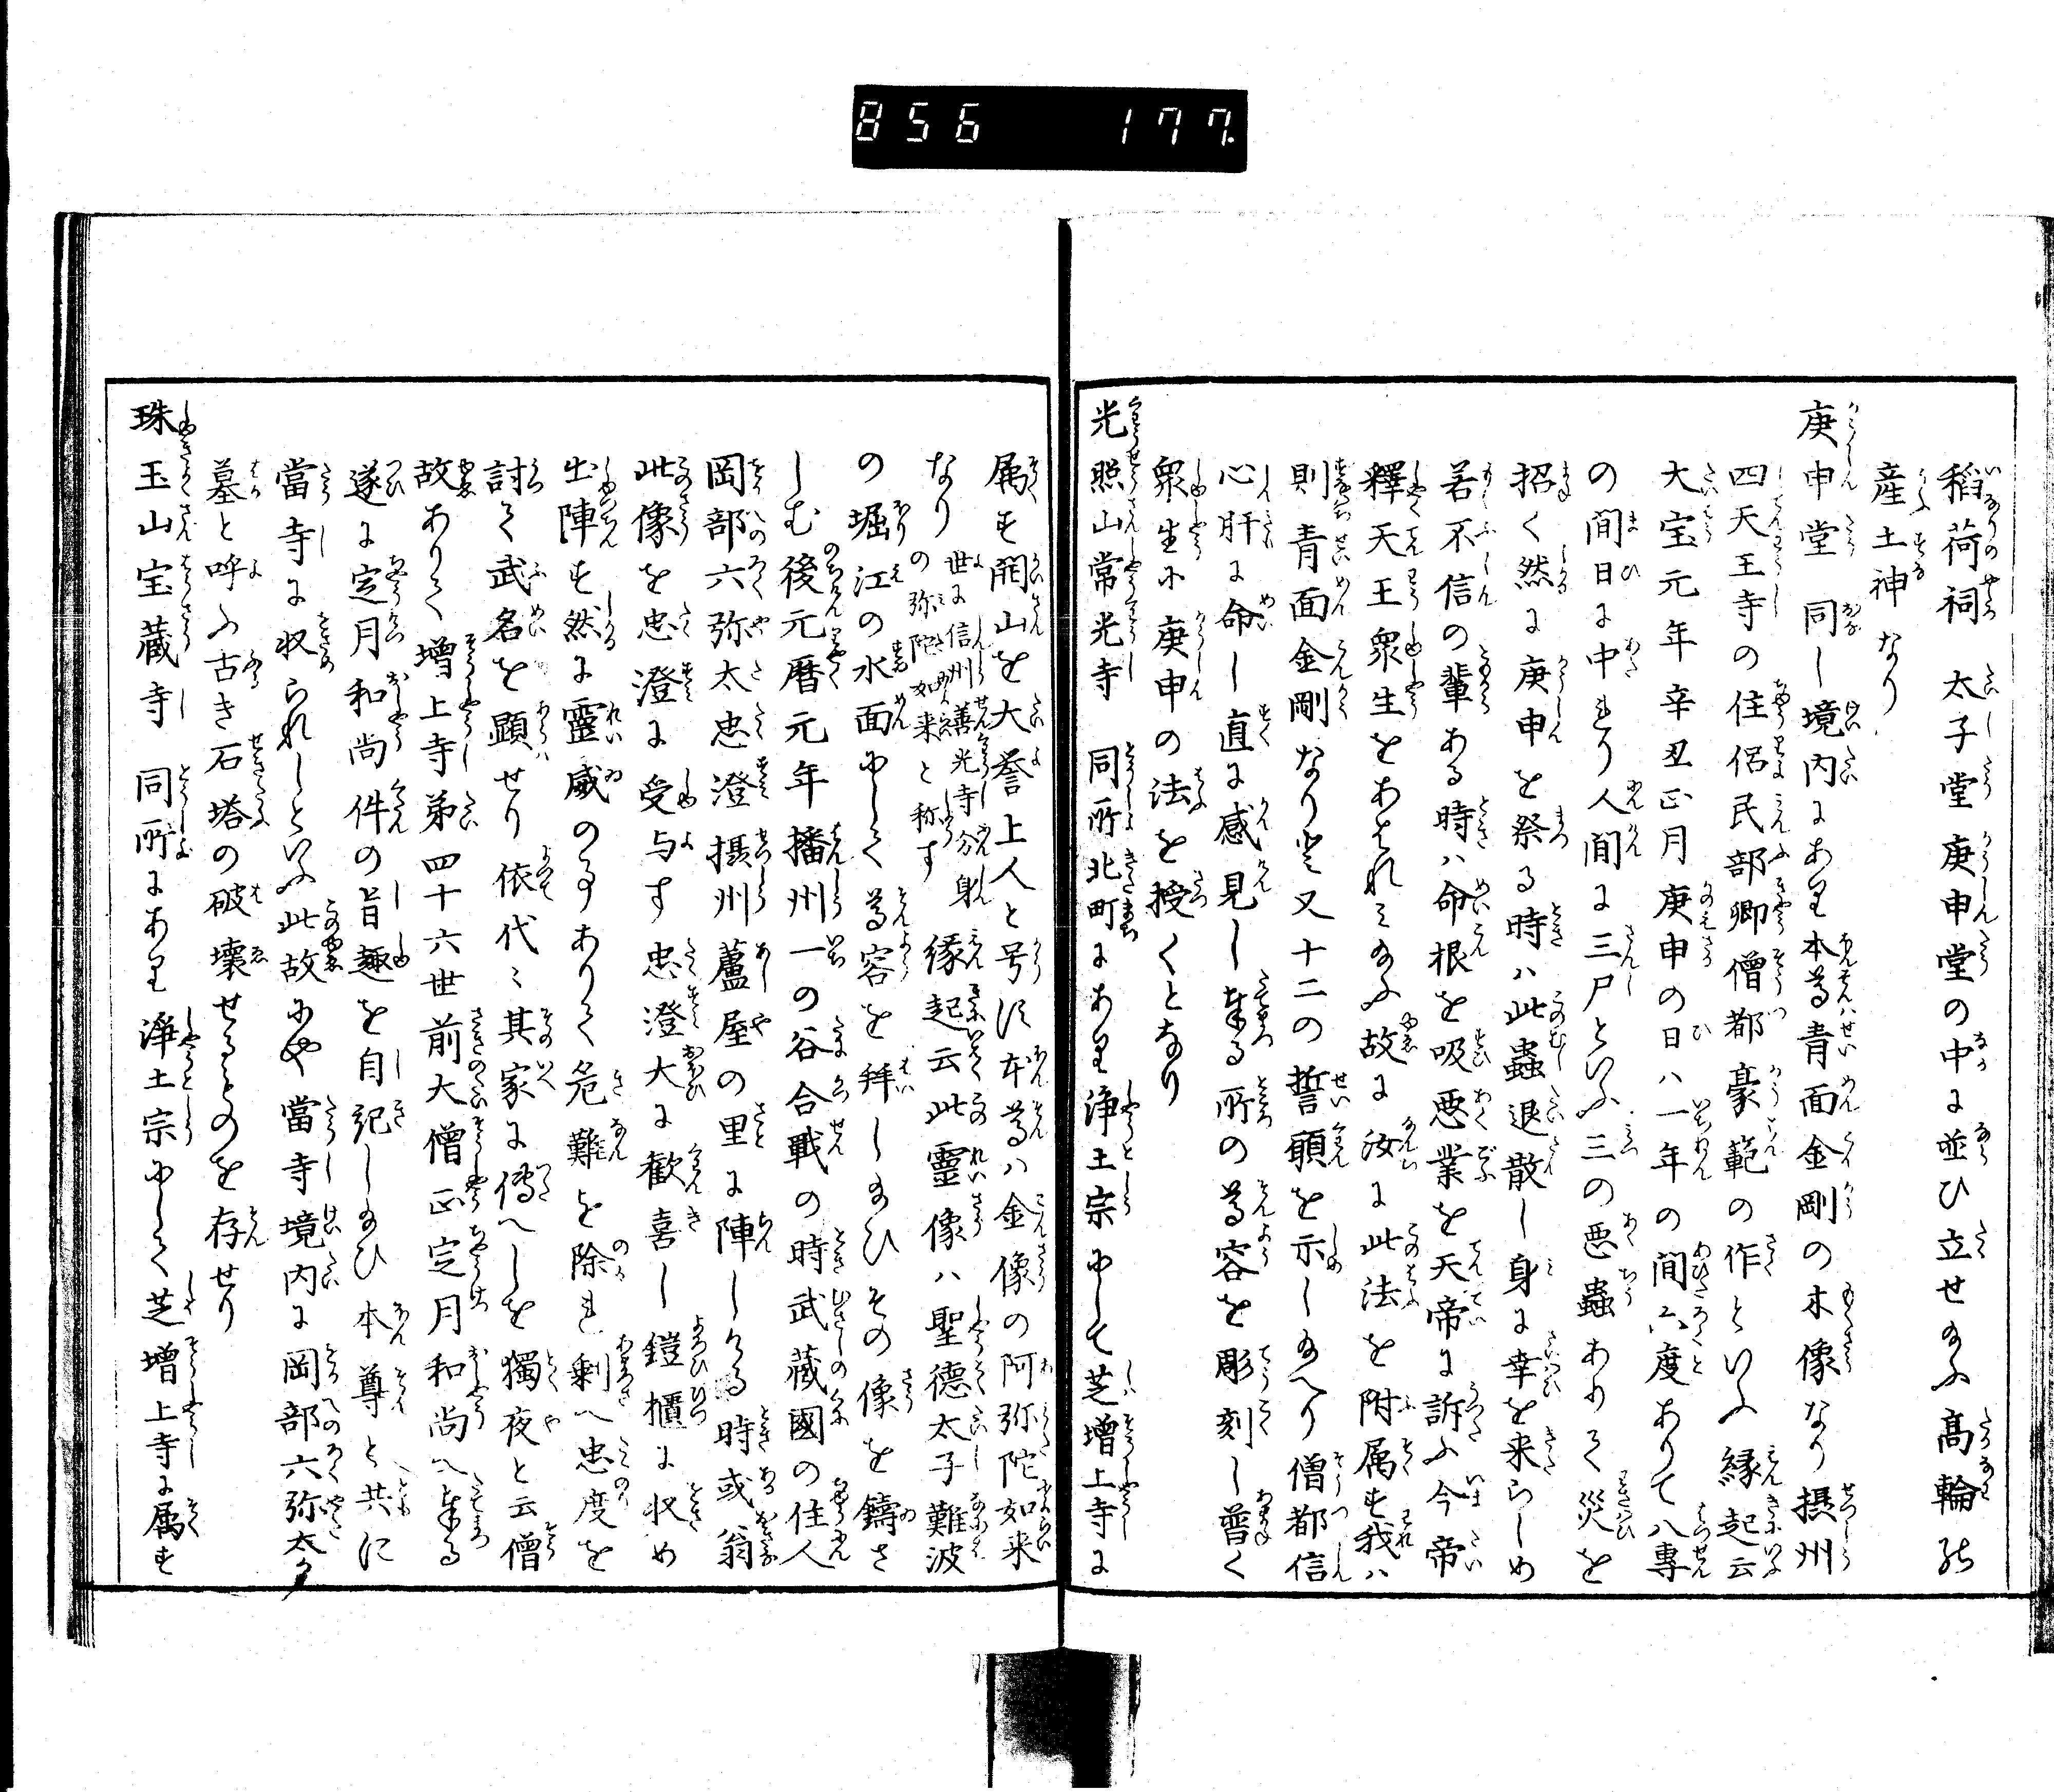 856 177
稲荷祠 太子堂庚申堂の中に並ひ立せ給ふ高輪の
産土神なり
庚申堂 同し境内にあり本尊青面金剛の木像なり摂州
四天王寺の住侶民部卿僧都豪範の作といふ縁起云
大宝元年辛丑正月庚申の日ハ一年の間六度ありて八専
の間日に中れり人間に三尸といふ三の悪蟲ありて災を
招く然に庚申を祭る時ハ此蟲退散し身に幸を来らしめ
若不信の輩ある時ハ命根を吸悪業を天帝に訴ふ今帝
釋天王衆生をあはれミ給ふ故に汝に此法を附属す我ハ
則青面金剛なりと又十二の誓願を示し給へり僧都信
心肝に命し直に感見し奉る所の尊容を彫刻し普く
衆生に庚申の法を授くとなり
光照山常光寺 同所北町にあり浄土宗にして芝増上寺に
属す開山を大誉上人と号す本尊ハ金像の阿弥陀如来
なり 世に信州善光寺分身の弥陀如来と称す 縁起云此靈像ハ聖徳太子難波
の堀江の水面にして尊容を拝し給ひその像を鑄さ
しむ後元暦元年播州一の谷合戰の時武藏國の住人
岡部六弥太忠澄摂州蘆屋の里に陣しける時或翁
此像を忠澄に受与す忠澄大に歓喜し鎧櫃に収め
出陣す然に靈威の事ありて危難を除れ剰へ忠度を
討て武名を顕せり依代々其家に傳へしを獨夜と云僧
故ありて増上寺第四十六世前大僧正定月和尚へ奉る
遂に定月和尚件の旨趣を自記し給ひ本尊と共に
當寺に収られしといふ此故にや當寺境内に岡部六弥太か
墓と呼ふ古き石塔の破壊せるものを存せり
珠玉山宝蔵寺 同所にあり浄土宗にして芝増上寺に属す